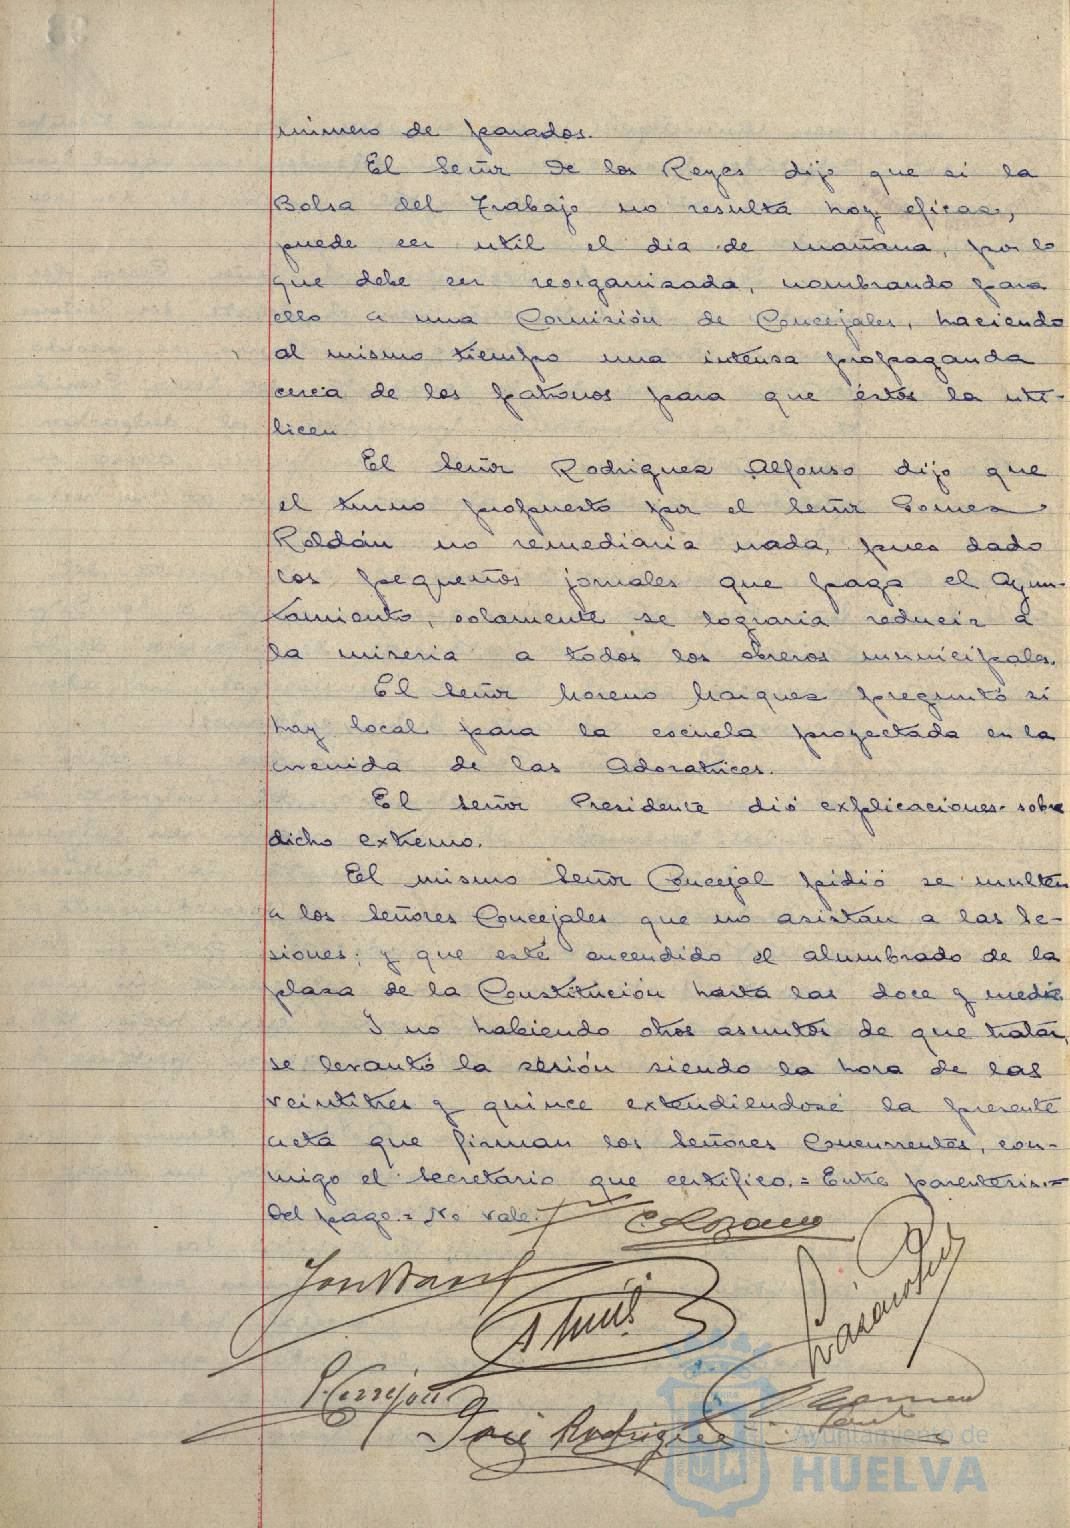 número de parados.
El Señor de los Reyes dijo que si la
Bolsa del Trabajo no resulta hoy eficaz,
puede ser util el dia de mañana, por lo
que debe ser reorganizada, nombrando para
ello a una Comisión de Concejales, haciendo
al mismo tiempo una intensa propaganda
cerca de los patronos para que éstos la uti-
licen
El Señor Rodriguez Alfonso dijo que
el turno propuesto por el Señor Gomez
Roldán no remediaria nada, pues dado
los pequeños jornales que paga el Ayun-
tamiento, solamente se lograria reducir a
la miseria a todos los obreros municipales.
El Señor Moreno Marquez preguntó si
hay local para la escuela proyectada en la
avenida de las Adoratrices.
El Señor Presidente dió explicaciones sobre
dicho extremo.
El mismo Señor Concejal pidió se multen
a los Señores Concejales que no asistan a las se-
siones; y que esté encendido el alumbrado de la
plaza de la Constitución hasta las doce y media
Y no habiendo otros asuntos de que tratar,
se levantó la sesión siendo la hora de las
veintitres y quince extendiendose la presente
acta que firman los Señores Concurrentes, con-
migo el Secretario que certifico.=Entre parentesis.=
Del pago.=No vale.
José Rodriguez
Ayuntamiento de
HUELVA